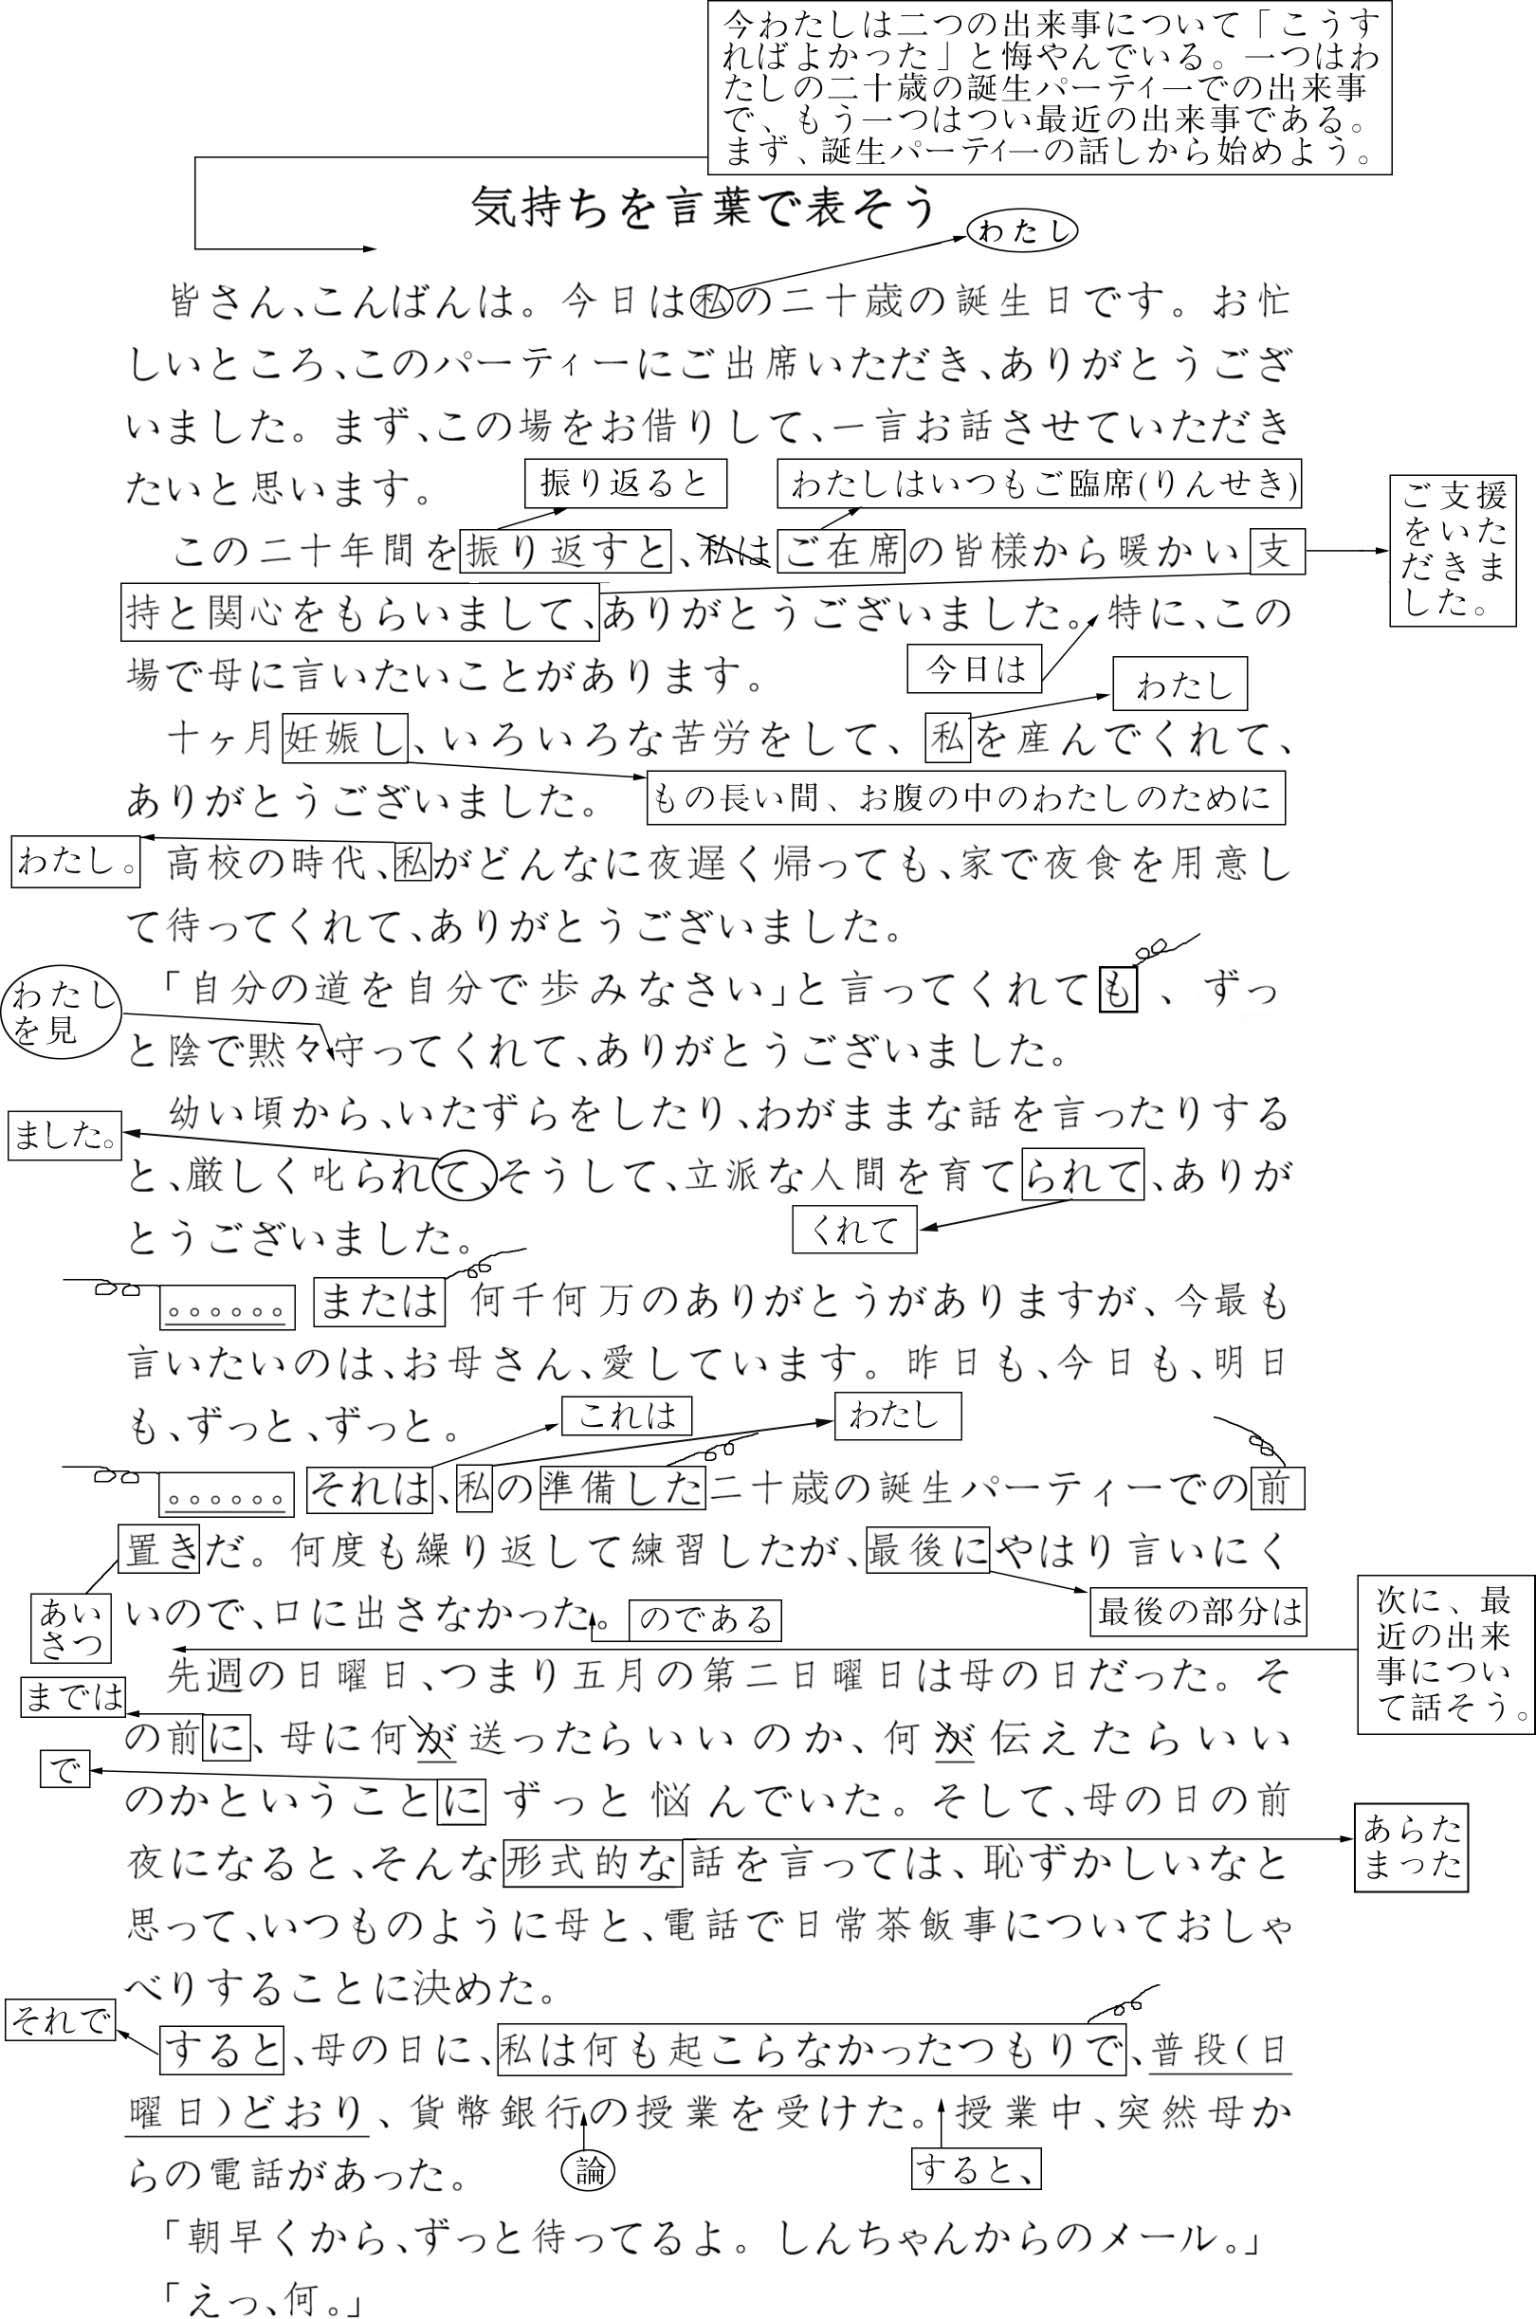 今わたしは二つの出来事について「こうす
ればよかった」と悔やんでいる。一つはわ
たしの二十歳の誕生パーティーでの出来事
で、もう一つはつい最近の出来事である。
まず、誕生パーティーの話しから始めよう。
気持ちを言葉で表そう
わたし
皆さん、こんばんは。今日は私の二十歳の誕生日です。お忙
しいところ、このパーティーにご出席いただき、ありがとうござ
いました。まず、この場をお借りして、一言お話させていただき
たいと思います。
振り返ると
わたしはいつもご臨席(りんせき)
ご支援
をいた
だきま
した。
この二十年間を振り返すと、私はご在席の皆様から暖かい支
持と関心をもらいまして、ありがとうございました。特に、この
今日は
場で母に言いたいことがあります。
わたし
十ヶ月妊娠し、いろいろな苦労をして、私を産んでくれて、
ありがとうございました。
もの長い間、お腹の中のわたしのために
わたし。
高校の時代、私がどんなに夜遅く帰っても、家で夜食を用意し
て待ってくれて、ありがとうございました。
わたし
を見
「自分の道を自分で歩みなさい」と言ってくれても、ずっ
と陰で黙々守ってくれて、ありがとうございました。
幼い頃から、いたずらをしたり、わがままな話を言ったりする
ました。
と、厳しく叱られて、そうして、立派な人間を育てられて、ありが
くれて
とうございました。
。。。。。。 または 何千何万のありがとうがありますが、今最も
言いたいのは、お母さん、愛しています。昨日も、今日も、明日
も、ずっと、ずっと。
これは
わたし
。。。。。。 それは、私の準備した二十歳の誕生パーティーでの前
置きだ。何度も繰り返して練習したが、最後にやはり言いにく
あい
さつ
最後の部分は
いので、口に出さなかった。
のである
次に、最
近の出来
事につい
て話そう。
先週の日曜日、つまり五月の第二日曜日は母の日だった。そ
までは
の前に、母に何が送ったらいいのか、何が伝えたらいい
で
のかということにずっと悩んでいた。そして、母の日の前
あらた
まった
夜になると、そんな形式的な話を言っては、恥ずかしいなと
思って、いつものように母と、電話で日常茶飯事についておしゃ
べりすることに決めた。
それで
すると、母の日に、私は何も起こらなかったつもりで、普段(日
曜日)どおり、貨幣銀行の授業を受けた。授業中、突然母か
論
すると、
らの電話があった。
「朝早くから、ずっと待ってるよ。しんちゃんからのメール。」
「えっ、何。」